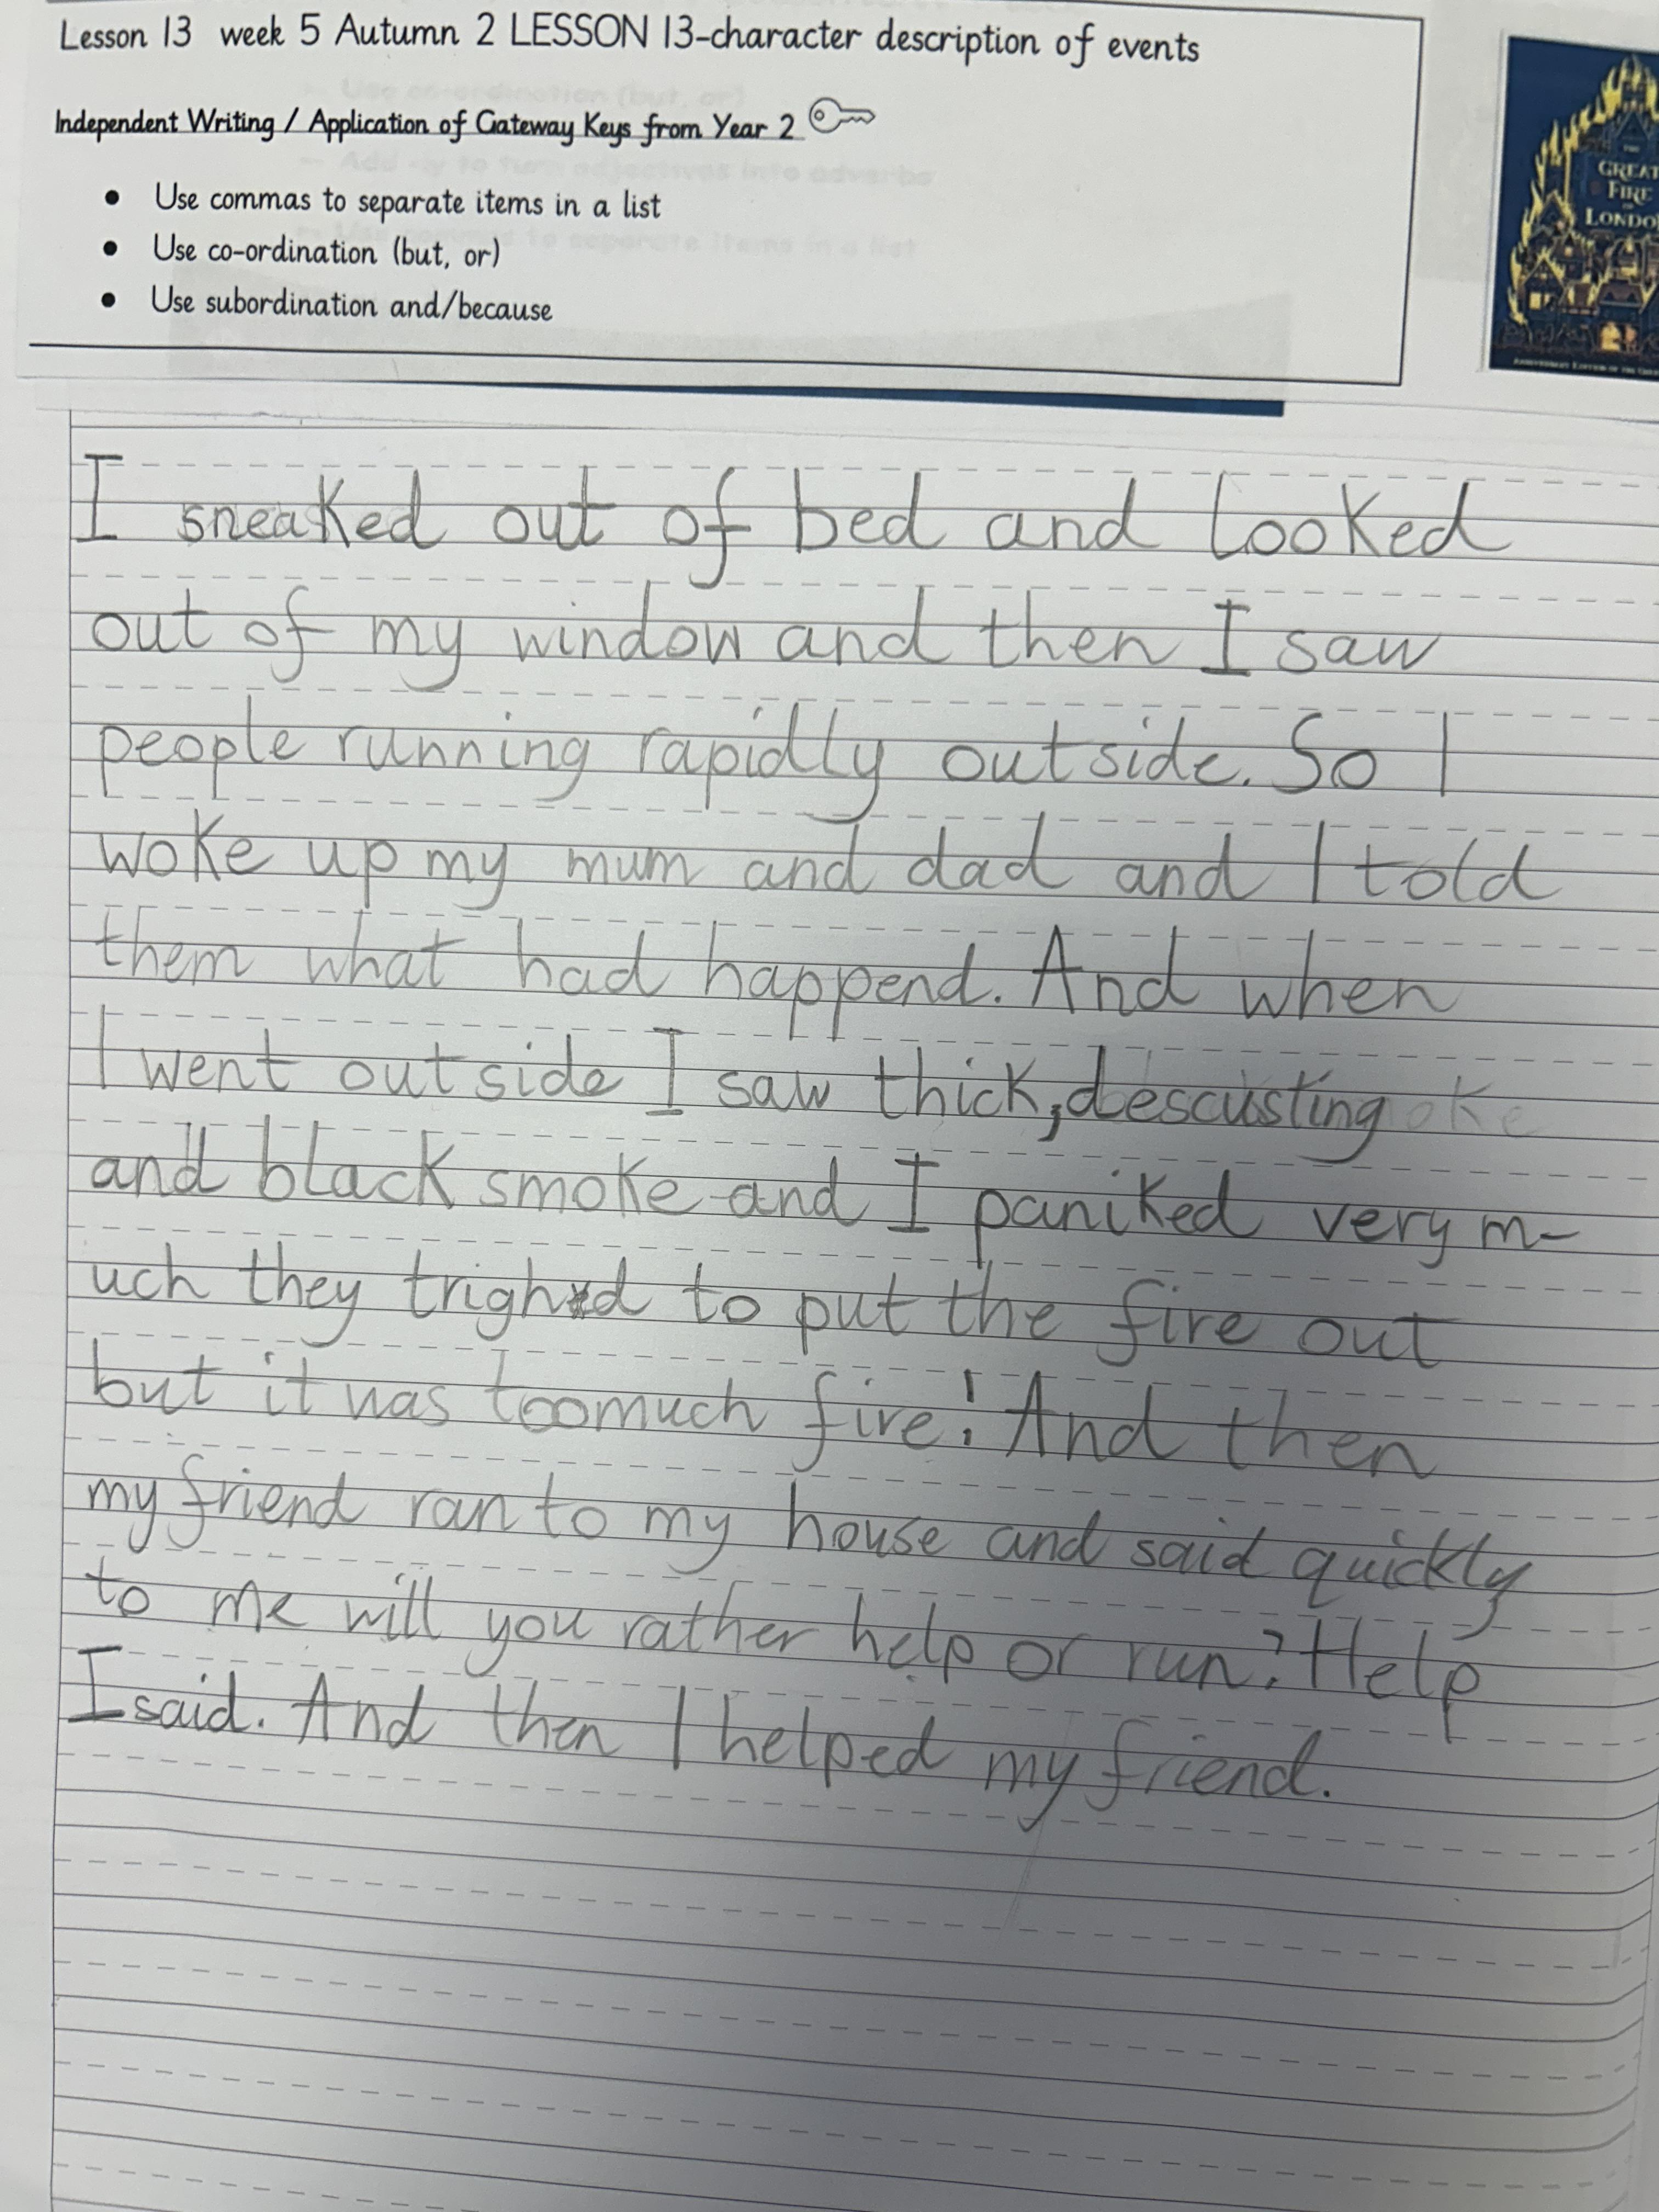 Lesson 13 week 5 Autumn 2 LESSON 13-character description of events
Independent Writing / Application of Gateway Keys from Year 2
• Use commas to separate items in a list
• Use co-ordination (but, or)
• Use subordination and/because
THE
GREAT
FIRE
OF
LONDO
I sneaked out of bed and looked
out of my window and then I saw
people running rapidly outside. So I
woke up my mum and dad and I told
them what had happend. And when
I went outside I saw thick, descusting
and black smoke and I paniked very m-
uch they trighd to put the fire out
but it was toomuch fire! And then
my friend ran to my house and said quickly
to me will you rather help or run? Help
I said. And then I helped my friend.